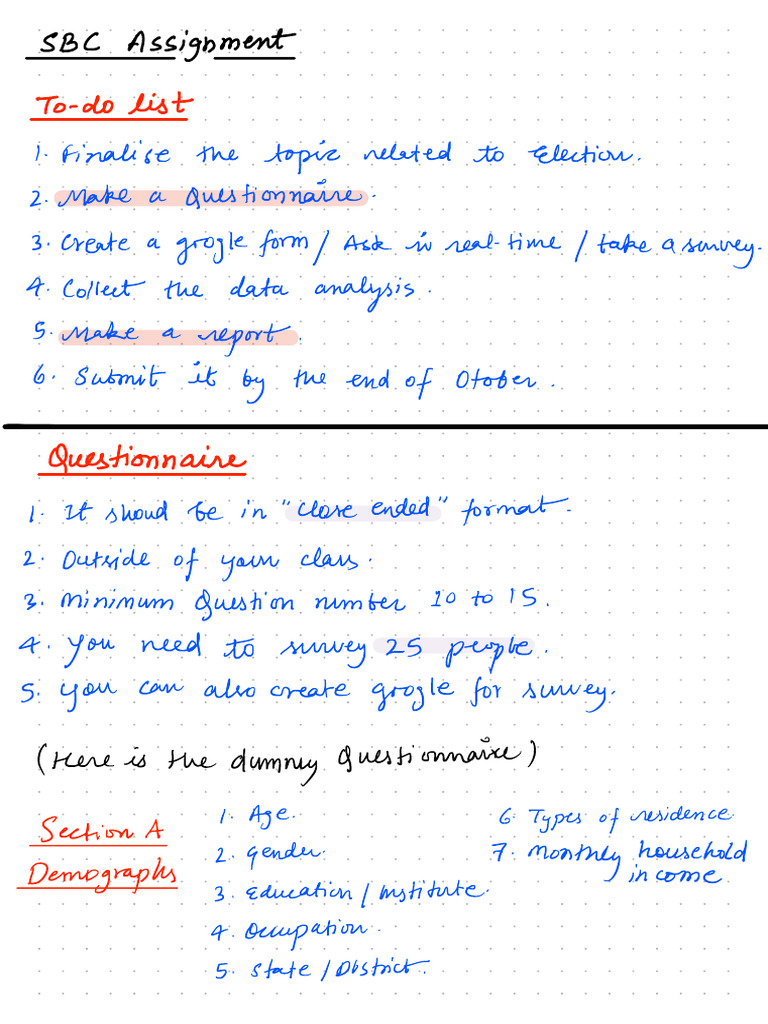 SBC Assignment
To-do list
1. Finalise the topic related to Election.
2. Make a Questionnaire.
3. Create a google form / Ask in real-time / take a survey.
4. Collect the data analysis.
5. Make a report.
6. Submit it by the end of Otober.
Questionnaire
1. It shoud be in "close ended" format.
2. Outside of your class.
3. Minimum Question number 10 to 15.
4. You need to survey 25 people.
5. You can also create google for survey.
(Here is the dummy Questionnaire)
Section A
Demographs
1. Age.
2. Gender.
3. Education / Institute.
4. Occupation.
5. State / District.
6. Types of residence
7. Monthly household
income